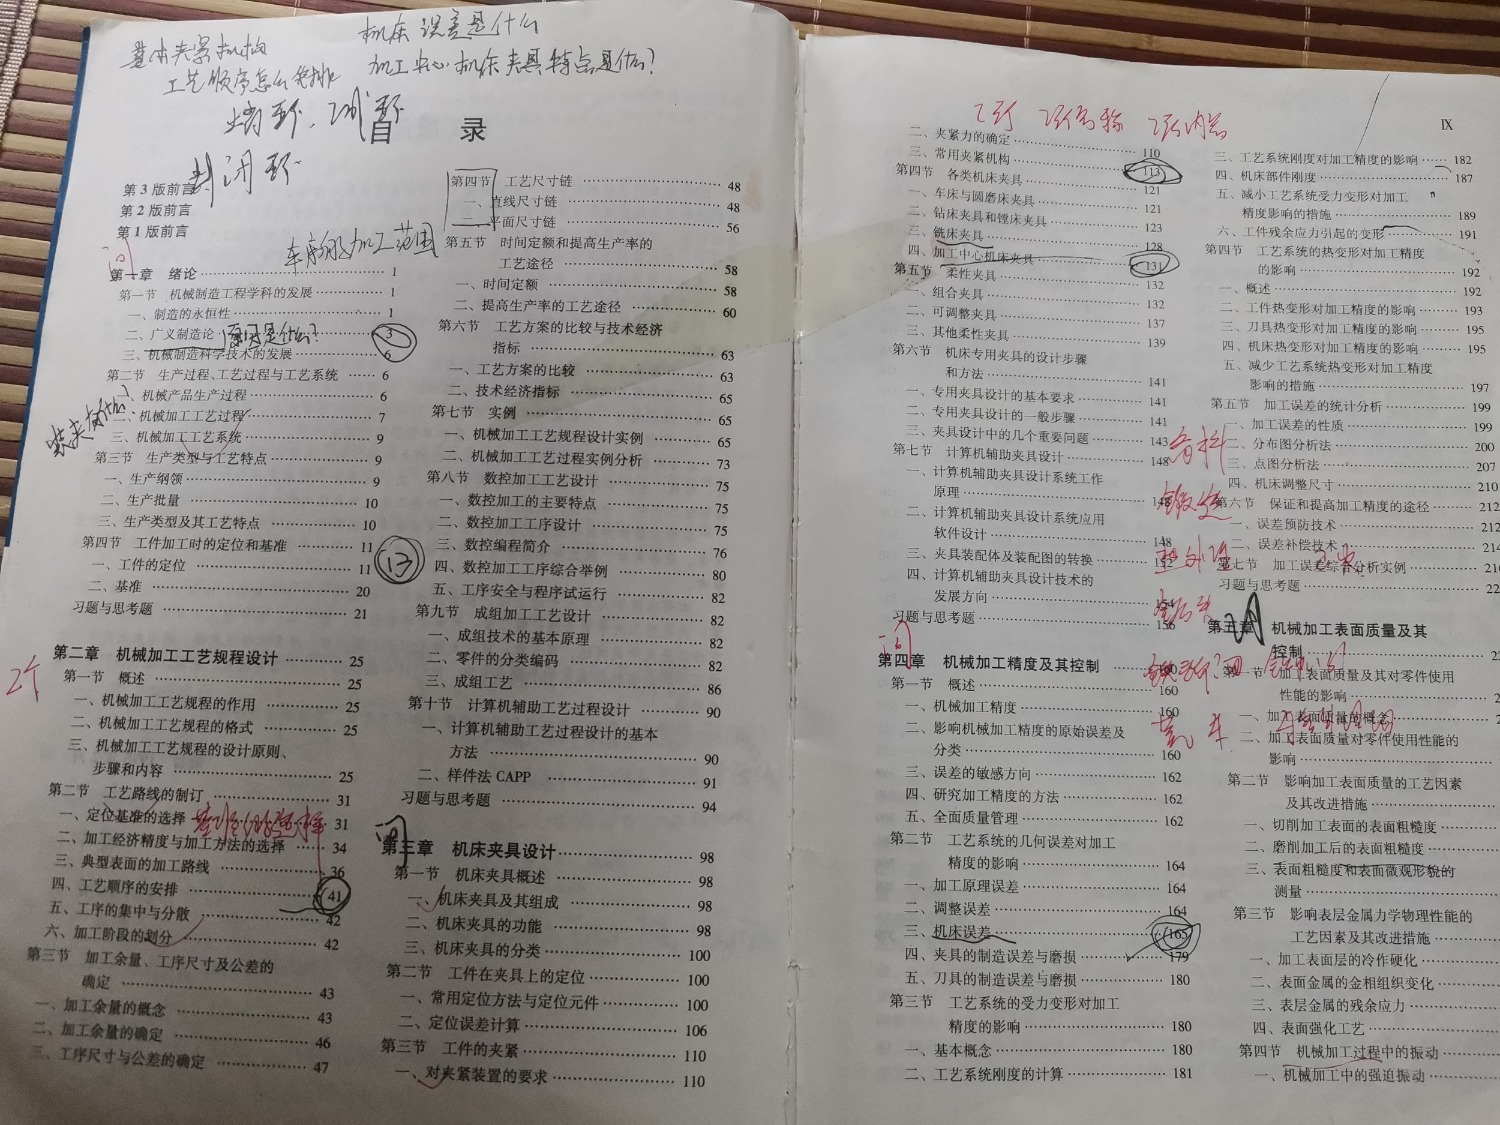 基本夹紧机构
工艺顺序怎么安排
机床误差是什么
加工中心机床夹具特点是什么?
目 录
第3版前言
第2版前言
第1版前言
车床 加工范围
问
第一章 绪论 1
第一节 机械制造工程学科的发展 1
一、制造的永恒性 1
二、广义制造论 3
原因是什么?
三、机械制造科学技术的发展 6
第二节 生产过程、工艺过程与工艺系统 6
一、机械产品生产过程 6
二、机械加工工艺过程 7
三、机械加工工艺系统 9
第三节 生产类型与工艺特点 9
一、生产纲领 9
二、生产批量 10
三、生产类型及其工艺特点 10
第四节 工件加工时的定位和基准 11
一、工件的定位 11
13
二、基准 20
习题与思考题 21
2个
第二章 机械加工工艺规程设计 25
第一节 概述 25
一、机械加工工艺规程的作用 25
二、机械加工工艺规程的格式 25
三、机械加工工艺规程的设计原则、
步骤和内容 25
第二节 工艺路线的制订 31
一、定位基准的选择 31
基准的选择
二、加工经济精度与加工方法的选择 34
三、典型表面的加工路线 36
四、工艺顺序的安排 41
五、工序的集中与分散 42
六、加工阶段的划分 42
第三节 加工余量、工序尺寸及公差的
确定 43
一、加工余量的概念 43
二、加工余量的确定 46
三、工序尺寸与公差的确定 47
第四节 工艺尺寸链 48
一、直线尺寸链 48
二、平面尺寸链 56
第五节 时间定额和提高生产率的
工艺途径 58
一、时间定额 58
二、提高生产率的工艺途径 60
第六节 工艺方案的比较与技术经济
指标 63
一、工艺方案的比较 63
二、技术经济指标 65
第七节 实例 65
一、机械加工工艺规程设计实例 65
二、机械加工工艺过程实例分析 73
第八节 数控加工工艺设计 75
一、数控加工的主要特点 75
二、数控加工工序设计 75
三、数控编程简介 76
四、数控加工工序综合举例 80
五、工序安全与程序试运行 82
第九节 成组加工工艺设计 82
一、成组技术的基本原理 82
二、零件的分类编码 82
三、成组工艺 86
第十节 计算机辅助工艺过程设计 90
一、计算机辅助工艺过程设计的基本
方法 90
二、样件法 CAPP 91
习题与思考题 94
问
第三章 机床夹具设计 98
第一节 机床夹具概述 98
一、机床夹具及其组成 98
二、机床夹具的功能 98
三、机床夹具的分类 100
第二节 工件在夹具上的定位 100
一、常用定位方法与定位元件 100
二、定位误差计算 106
第三节 工件的夹紧 110
一、对夹紧装置的要求 110
IX
二、夹紧力的确定 110
三、常用夹紧机构 113
第四节 各类机床夹具 121
一、车床与圆磨床夹具 121
二、钻床夹具和镗床夹具 123
三、铣床夹具 128
四、加工中心机床夹具 131
第五节 柔性夹具 132
一、组合夹具 132
二、可调整夹具 137
三、其他柔性夹具 139
第六节 机床专用夹具的设计步骤
和方法 141
一、专用夹具设计的基本要求 141
二、专用夹具设计的一般步骤 141
三、夹具设计中的几个重要问题 143
第七节 计算机辅助夹具设计 148
一、计算机辅助夹具设计系统工作
原理 148
二、计算机辅助夹具设计系统应用
软件设计 148
三、夹具装配体及装配图的转换 152
四、计算机辅助夹具设计技术的
发展方向 154
习题与思考题 156
问
第四章 机械加工精度及其控制
第一节 概述 160
一、机械加工精度 160
二、影响机械加工精度的原始误差及
分类 160
三、误差的敏感方向 162
四、研究加工精度的方法 162
五、全面质量管理 162
第二节 工艺系统的几何误差对加工
精度的影响 164
一、加工原理误差 164
二、调整误差 164
三、机床误差 165
四、夹具的制造误差与磨损 179
五、刀具的制造误差与磨损 180
第三节 工艺系统的受力变形对加工
精度的影响 180
一、基本概念 180
二、工艺系统刚度的计算 181
三、工艺系统刚度对加工精度的影响 182
四、机床部件刚度 187
五、减小工艺系统受力变形对加工
精度影响的措施 189
六、工件残余应力引起的变形 191
第四节 工艺系统的热变形对加工精度
的影响 192
一、概述 192
二、工件热变形对加工精度的影响 193
三、刀具热变形对加工精度的影响 195
四、机床热变形对加工精度的影响 195
五、减少工艺系统热变形对加工精度
影响的措施 197
第五节 加工误差的统计分析 199
一、加工误差的性质 199
二、分布图分析法 200
三、点图分析法 207
四、机床调整尺寸 210
第六节 保证和提高加工精度的途径 212
一、误差预防技术 212
二、误差补偿技术 214
第七节 加工误差综合分析实例
习题与思考题
第五章 机械加工表面质量及其
控制
第一节 加工表面质量及其对零件使用
性能的影响
一、加工表面质量的概念
二、加工表面质量对零件使用性能的
影响
第二节 影响加工表面质量的工艺因素
及其改进措施
一、切削加工表面的表面粗糙度
二、磨削加工后的表面粗糙度
三、表面粗糙度和表面微观形貌的
测量
第三节 影响表层金属力学物理性能的
工艺因素及其改进措施
一、加工表面层的冷作硬化
二、表面金属的金相组织变化
三、表层金属的残余应力
四、表面强化工艺
第四节 机械加工过程中的振动
一、机械加工中的强迫振动